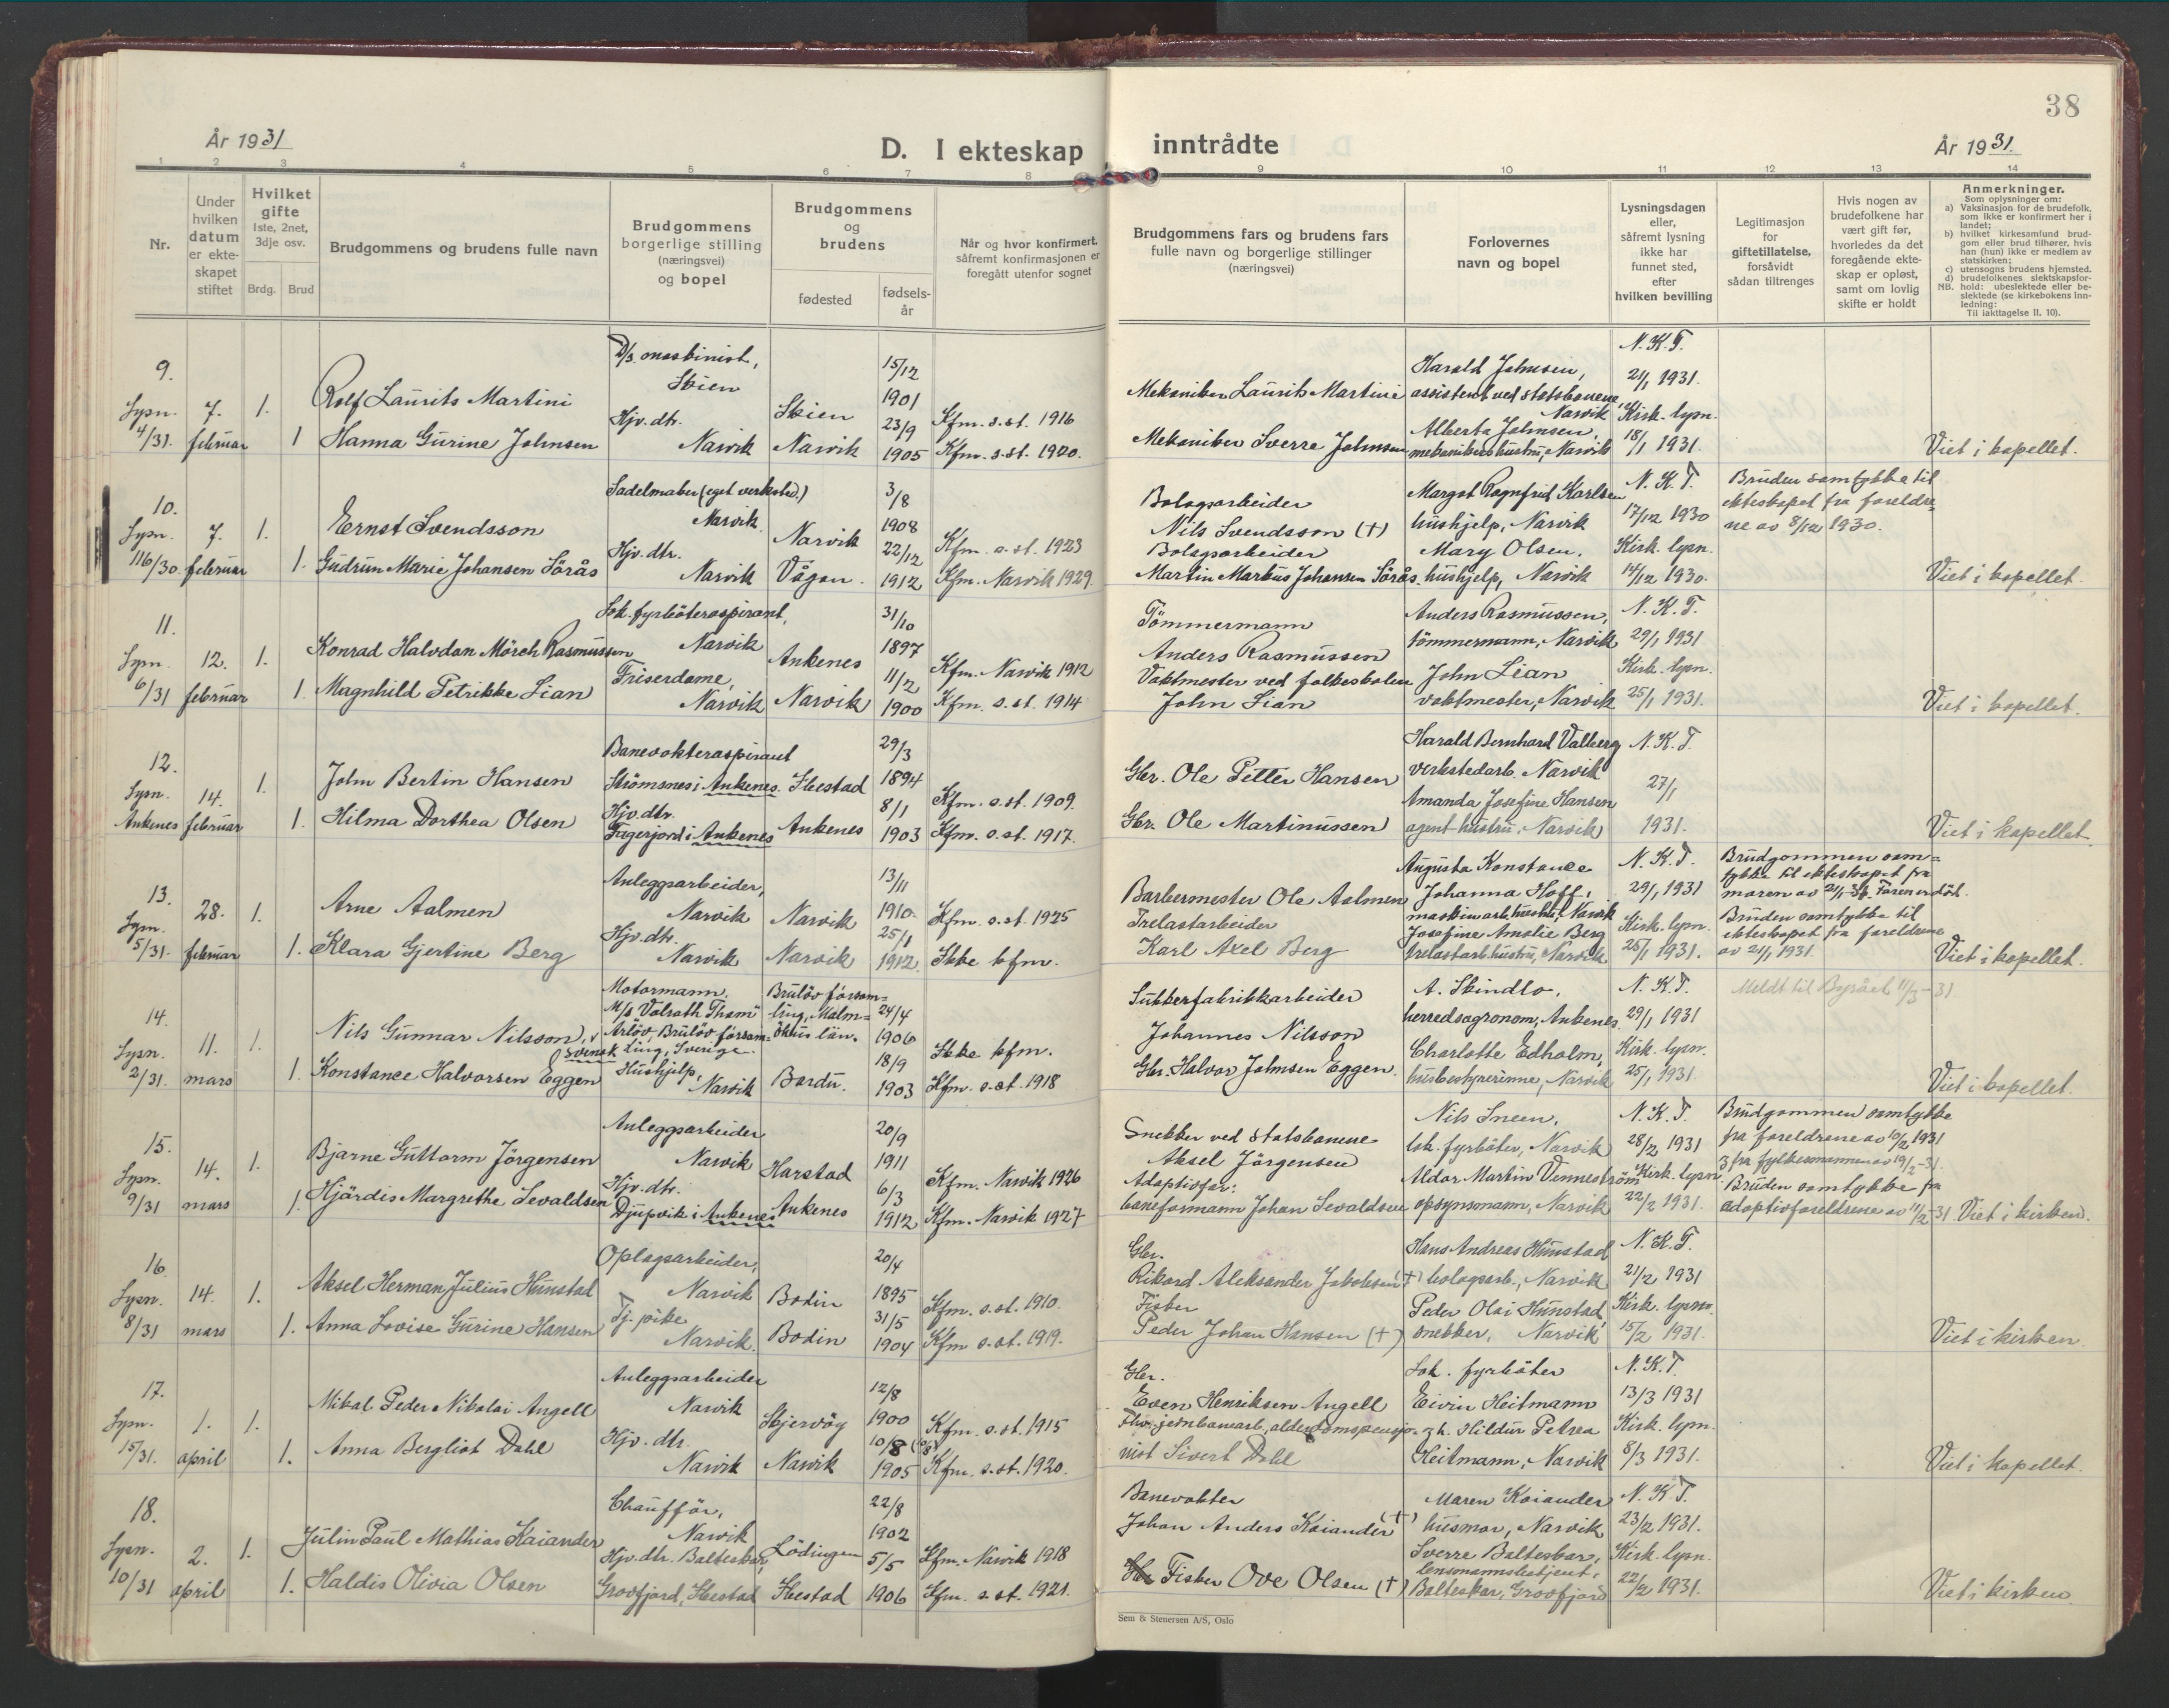 38
År 1931
D. I ekteskap inntrådte
År 1931.
1 2 3 4 5 6 7 8 9 10 11 12 13 14
Nr.
Under hvilken datum er ekteskapet stiftet
Hvilket gifte
1ste, 2net, 3dje osv.
Brdg. Brud
Brudgommens og brudens fulle navn
Brudgommens borgerlige stilling (næringsvei) og bopel
Brudgommens og brudens
fødested
fødselsår
Når og hvor konfirmert, såfremt konfirmasjonen er foregått utenfor sognet
Brudgommens fars og brudens fars fulle navn og borgerlige stillinger (næringsvei)
Forlovernes navn og bopel
Lysningsdagen eller, såfremt lysning ikke har funnet sted, efter hvilken bevilling
Legitimasjon for giftetillatelse, forsåvidt sådan tiltrenges
Hvis nogen av brudefolkene har vært gift før, hvorledes da det foregående ekteskap er opløst, samt om lovlig skifte er holdt
Anmerkninger.
Som oplysninger om:
a) Vaksinasjon for de brudefolk, som ikke er konfirmert her i landet;
b) hvilket kirkesamfund brudgom eller brud tilhører, hvis han (hun) ikke er medlem av statskirken;
c) utensogns brudens hjemsted.
d) brudefolkenes slektskapsforhold: ubeslektede eller beslektede (se kirkebokens Innledning:
NB. Til iakttagelse II. 10).
9.
Lysn. 4/31.
7. februar
1.
Rolf Laurits Martini
D/s. maskinist, Skien
Skien
15/12 1901
Kfm. s.st. 1916
Mekaniker Laurits Martini
Harald Johnsen, assistent ved statsbanene, Narvik
N.K.T. 21/1 1931.
1
Hanna Gurine Johnsen
Hjv. dtr. Narvik
Narvik
23/9 1905
Kfm. s.st. 1920.
Mekaniker Sverre Johnsen
Alberta Johnsen, mekanikers hustru, Narvik
Kirk. lysn. 18/1 1931.
Viet i kapellet.
10.
Lysn. 116/30
7. februar
1.
Ernst Svendsson
Sadelmaker (eget verksted.) Narvik
Narvik
3/8 1908
Kfm. s.st. 1923
Bolagsarbeider
Nils Svendsson (†)
Margot Ragnfrid Karlsen hushjelp, Narvik
N.K.T. 17/12 1930
Bruden samtykke til ekteskapet fra foreldrene av 8/12 1930.
1.
Gudrun Marie Johansen Sörås
Hjv. dtr. Narvik
Vågan.
22/12 1912
Kfm. Narvik 1929.
Bolagsarbeider
Martin Markus Johansen Sörås.
Mary Olsen. hushjelp, Narvik
Kirk. lysn. 14/12 1930.
Viet i kapellet.
11.
Lysn. 6/31
12. februar
1.
Konrad Halvdan Mörch Rasmussen
Lok. fyrböteraspirant, Narvik
Ankenes
31/10 1897
Kfm. Narvik 1912
Tömmermann
Anders Rasmussen
Anders Rasmussen, tömmermann, Narvik
N.K.T. 29/1 1931
1.
Magnhild Petrikke Lian
Friserdame, Narvik
Narvik
11/2 1900
Kfm. s.st. 1914
Vaktmester ved folkeskolen
John Lian
John Lian vaktmester, Narvik
Kirk. lysn. 25/1 1931.
Viet i kapellet.
12.
Lysn. Ankenes
14. februar
1.
John Bertin Hansen
Banevokteraspirant Strömsnes i Ankenes.
Ibestad
29/3 1894
Kfm. s.st. 1909.
Gbr. Ole Petter Hansen
Harald Bernhard Valberg verkstedarb. Narvik
N.K.T. 27/1 1931.
1.
Hilma Dorthea Olsen
Hjv. dtr. Fagerjord i Ankenes
Ankenes
8/1 1903
Kfm. s.st. 1917.
Gbr. Ole Martinussen
Amanda Josefine Hansen agent hustru, Narvik
Viet i kapellet.
13.
Lysn. 5/31.
28. februar
1.
Arne Aalmen
Anleggsarbeider, Narvik
Narvik
13/11 1910.
Kfm. s.st. 1925
Barbermester Ole Aalmen
Augusta Konstance Johanna Hoff, maskinarb. hustru, Narvik
N.K.T. 29/1 1931
Brudgommen samtykke til ekteskapet fra moren av 21/1-31. Faren er död.
1.
Klara Gjertine Berg
Hjv. dtr. Narvik
Narvik
25/1 1912.
Ikke kfm.
Trelastarbeider
Karl Axel Berg
Josefine Amalie Berg trelastarb. hustru, Narvik
Kirk. lysn. 25/1 1931.
Bruden samtykke til ekteskapet fra foreldrene av 21/1 1931.
Viet i kapellet.
14.
Lysn. 2/31.
11. mars
1.
Nils Gunnar Nilsson, svensk
Motormann, M/s Valrath Tham Arlöv, Brulöv församling, Sverige.
Brulöv församling, Malmöhus län.
24/4 1906
Ikke kfm.
Sukkerfabrikkarbeider
Johannes Nilsson
A. Skindlo, herredsagronom, Ankenes.
N.K.T. 29/1 1931
Meldt til Byrået 11/3-31
1.
Konstance Halvorsen Eggen
Hushjelp, Narvik
Bardu.
18/9 1903
Kfm. s.st. 1918
Gbr. Halvor Johnsen Eggen.
Charlotte Edholm, husbestyrerinne, Narvik
Kirk. lysn. 25/1 1931.
Viet i kapellet.
15.
Lysn. 9/31
14. mars
1.
Bjarne Guttorm Jörgensen
Anleggsarbeider Narvik
Harstad
20/9 1911
Kfm. Narvik 1926
Snekker ved Statsbanene
Aksel Jörgensen
Nils Sneen, lok. fyrböter, Narvik
N.K.T. 28/2 1931
Brudgommen samtykke fra foreldrene av 10/2 1931 & fra fylkesmannen av 19/2-31.
1.
Hjördis Margrethe Sevaldsen
Hjv. dtr. Djupvik i Ankenes
Ankenes
6/3 1912
Kfm. Narvik 1927
Adoptivfar: baneformann Johan Sevaldsen
Aldor Martin Venneström opsynsmann, Narvik
Kirk. lysn. 22/2 1931.
Bruden samtykke fra adoptivforeldrene av 11/2-31
Viet i kirken.
16.
Lysn. 8/31
14. mars
1.
Aksel Herman Julius Hunstad
Oplagsarbeider, Narvik
Bodin
20/4 1895
Kfm. s.st. 1910.
Gbr.
Rikard Aleksander Jakobsen (†)
Hans Andreas Hunstad bolagsarb., Narvik
N.K.T. 21/2 1931
1.
Anna Lovise Gurine Hansen
Tj. pike Narvik.
Bodin
31/5 1904
Kfm s.st. 1919.
Fisker
Peder Johan Hansen (†)
Peder Olai Hunstad snekker, Narvik
Kirk. lysn. 15/2 1931.
Viet i kirken.
17.
Lysn. 15/31.
1. april
1.
Mikal Peder Nikolai Angell
Anleggsarbeider Narvik
Skjervöy
12/8 1900
Kfm. s.st. 1915
Gbr.
Even Henriksen Angell
Lok. fyrböter Eivin Heitmann
N.K.T. 13/3 1931
1.
Anna Bergliot Dahl
Hjv. dtr. Narvik
Narvik
10/8 1905
Kfm. s.st. 1920.
Fhv. jernbanearb., alderdomspensjonist Sivert Dahl
& h. Hildur Petrea Heitmann, Narvik
Kirk. lysn. 8/3 1931.
Viet i kapellet.
18.
Lysn. 10/31
2. april
1.
Julin Paul Mathias Kaiander
Chaufför, Narvik
Lödingen
22/8 1902
Kfm. Narvik 1918
Banevokter
Johan Anders Kaiander (†)
Maren Kaiander husmor, Narvik
N.K.T. 23/2 1931.
1.
Haldis Olivia Olsen
Hjv. dtr. Balteskar, Grovfjord, Ibestad
Ibestad
5/5 1906
Kfm. s.st. 1921.
Fisker Ove Olsen (†)
Sverre Balteskar, lensmannsbetjent, Balteskar, Grovfjord
Kirk. lysn. 22/2 1931.
Viet i kirken.
Sem & Stenersen A/S, Oslo